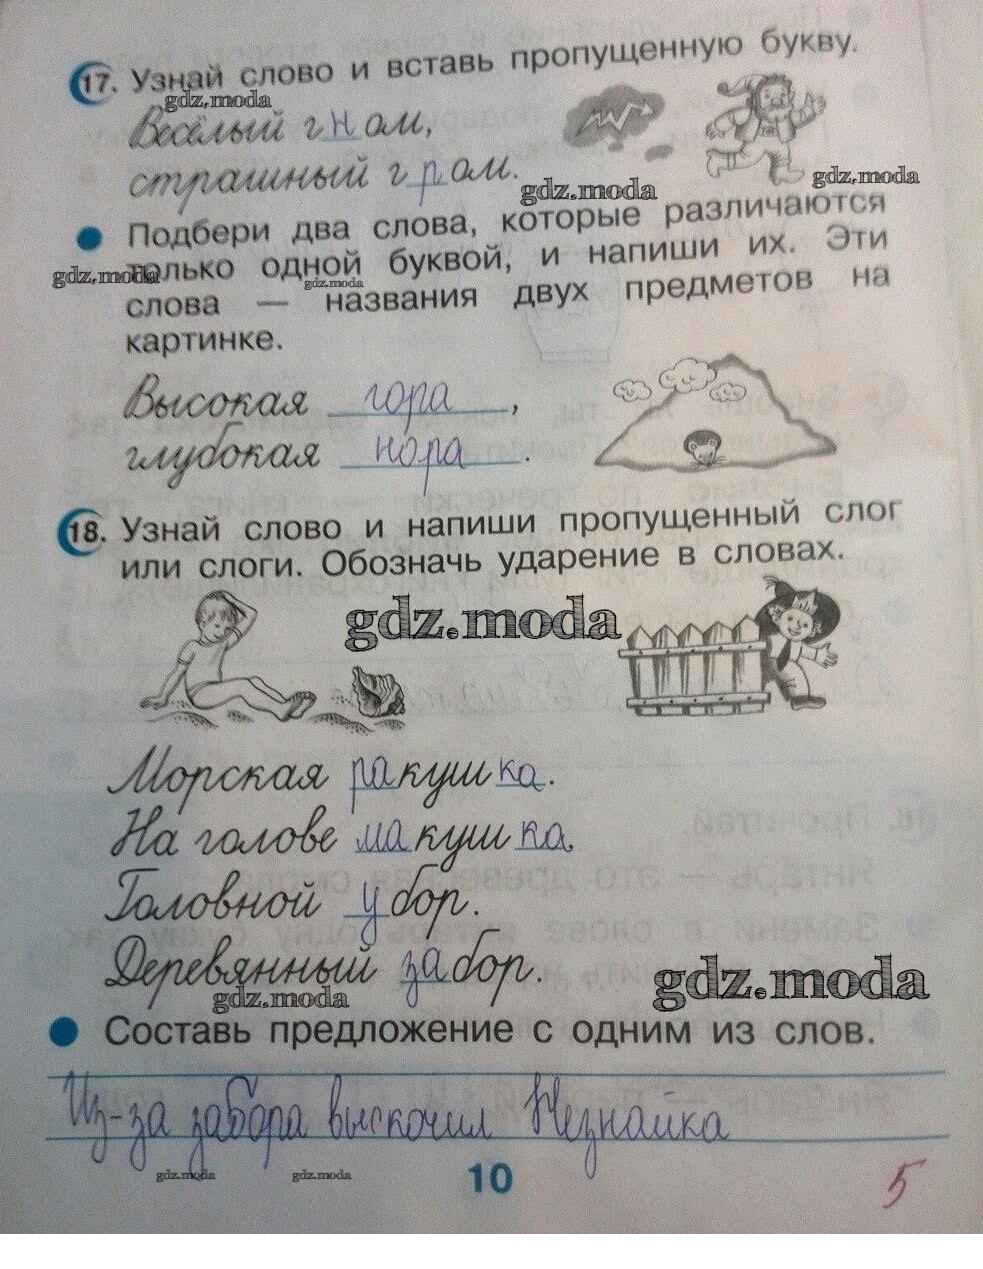 17. Узнай слово и вставь пропущенную букву.
gdz.moda
Весёлый гном,
страшный гром.
gdz.moda
gdz.moda
Подбери два слова, которые различаются
только одной буквой, и напиши их. Эти
gdz.moda
gdz.moda
слова — названия двух предметов на
картинке.
Высокая гора,
глубокая нора.
18. Узнай слово и напиши пропущенный слог
или слоги. Обозначь ударение в словах.
gdz.moda
Морская ракушка.
На голове макушка.
Головной убор.
Деревянный забор.
gdz.moda
gdz.moda
Составь предложение с одним из слов.
Из-за забора выскочил Незнайка
gdz.moda
gdz.moda
10
5